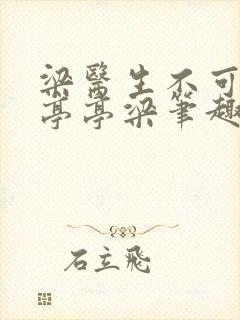 梁醫生不可
亭亭梁筆趣
石立飛